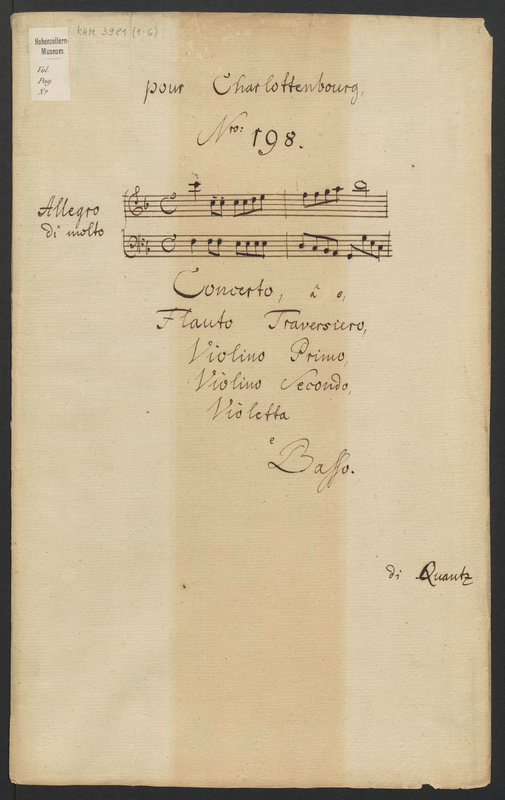 KHM 3981 (1-6)
Hohenzollern-
Museum.
Vol.
Pag.
Nr.
pour Charlottenbourg,
Nro: 198.
Allegro
di molto
Concerto, â
Flauto Traversiero,
Violino Primo,
Violino Secondo,
Violetta
e
Basso.
di Quantz